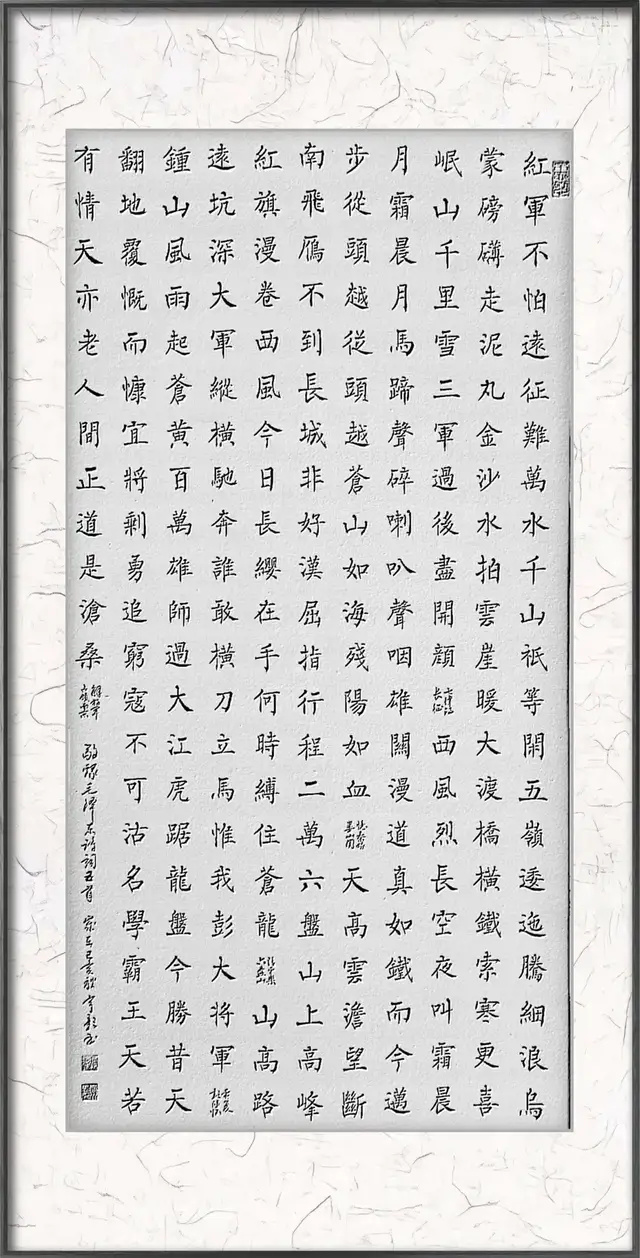 紅軍不怕遠征難萬水千山祇等閑五嶺逶迤騰細浪烏
蒙磅礴走泥丸金沙水拍雲崖暖大渡橋橫鐵索寒更喜
岷山千里雪三軍過後盡開顔 長征 西風烈長空夜叫霜晨
月霜晨月馬蹄聲碎喇叭聲咽雄關漫道真如鐵而今邁
步從頭越從頭越蒼山如海殘陽如血 婁山關 天高雲澹望斷
南飛鴈不到長城非好漢屈指行程二萬六盤山上高峰
紅旗漫卷西風今日長纓在手何時縛住蒼龍 清平樂六盤山 山高路
遠坑深大軍縱橫馳奔誰敢橫刀立馬惟我彭大將軍
鍾山風雨起蒼黃百萬雄師過大江虎踞龍盤今勝昔天
翻地覆慨而慷宜將剩勇追窮寇不可沽名學霸王天若
有情天亦老人間正道是滄桑 敬録毛澤東詩詞五首 歲在己亥秋